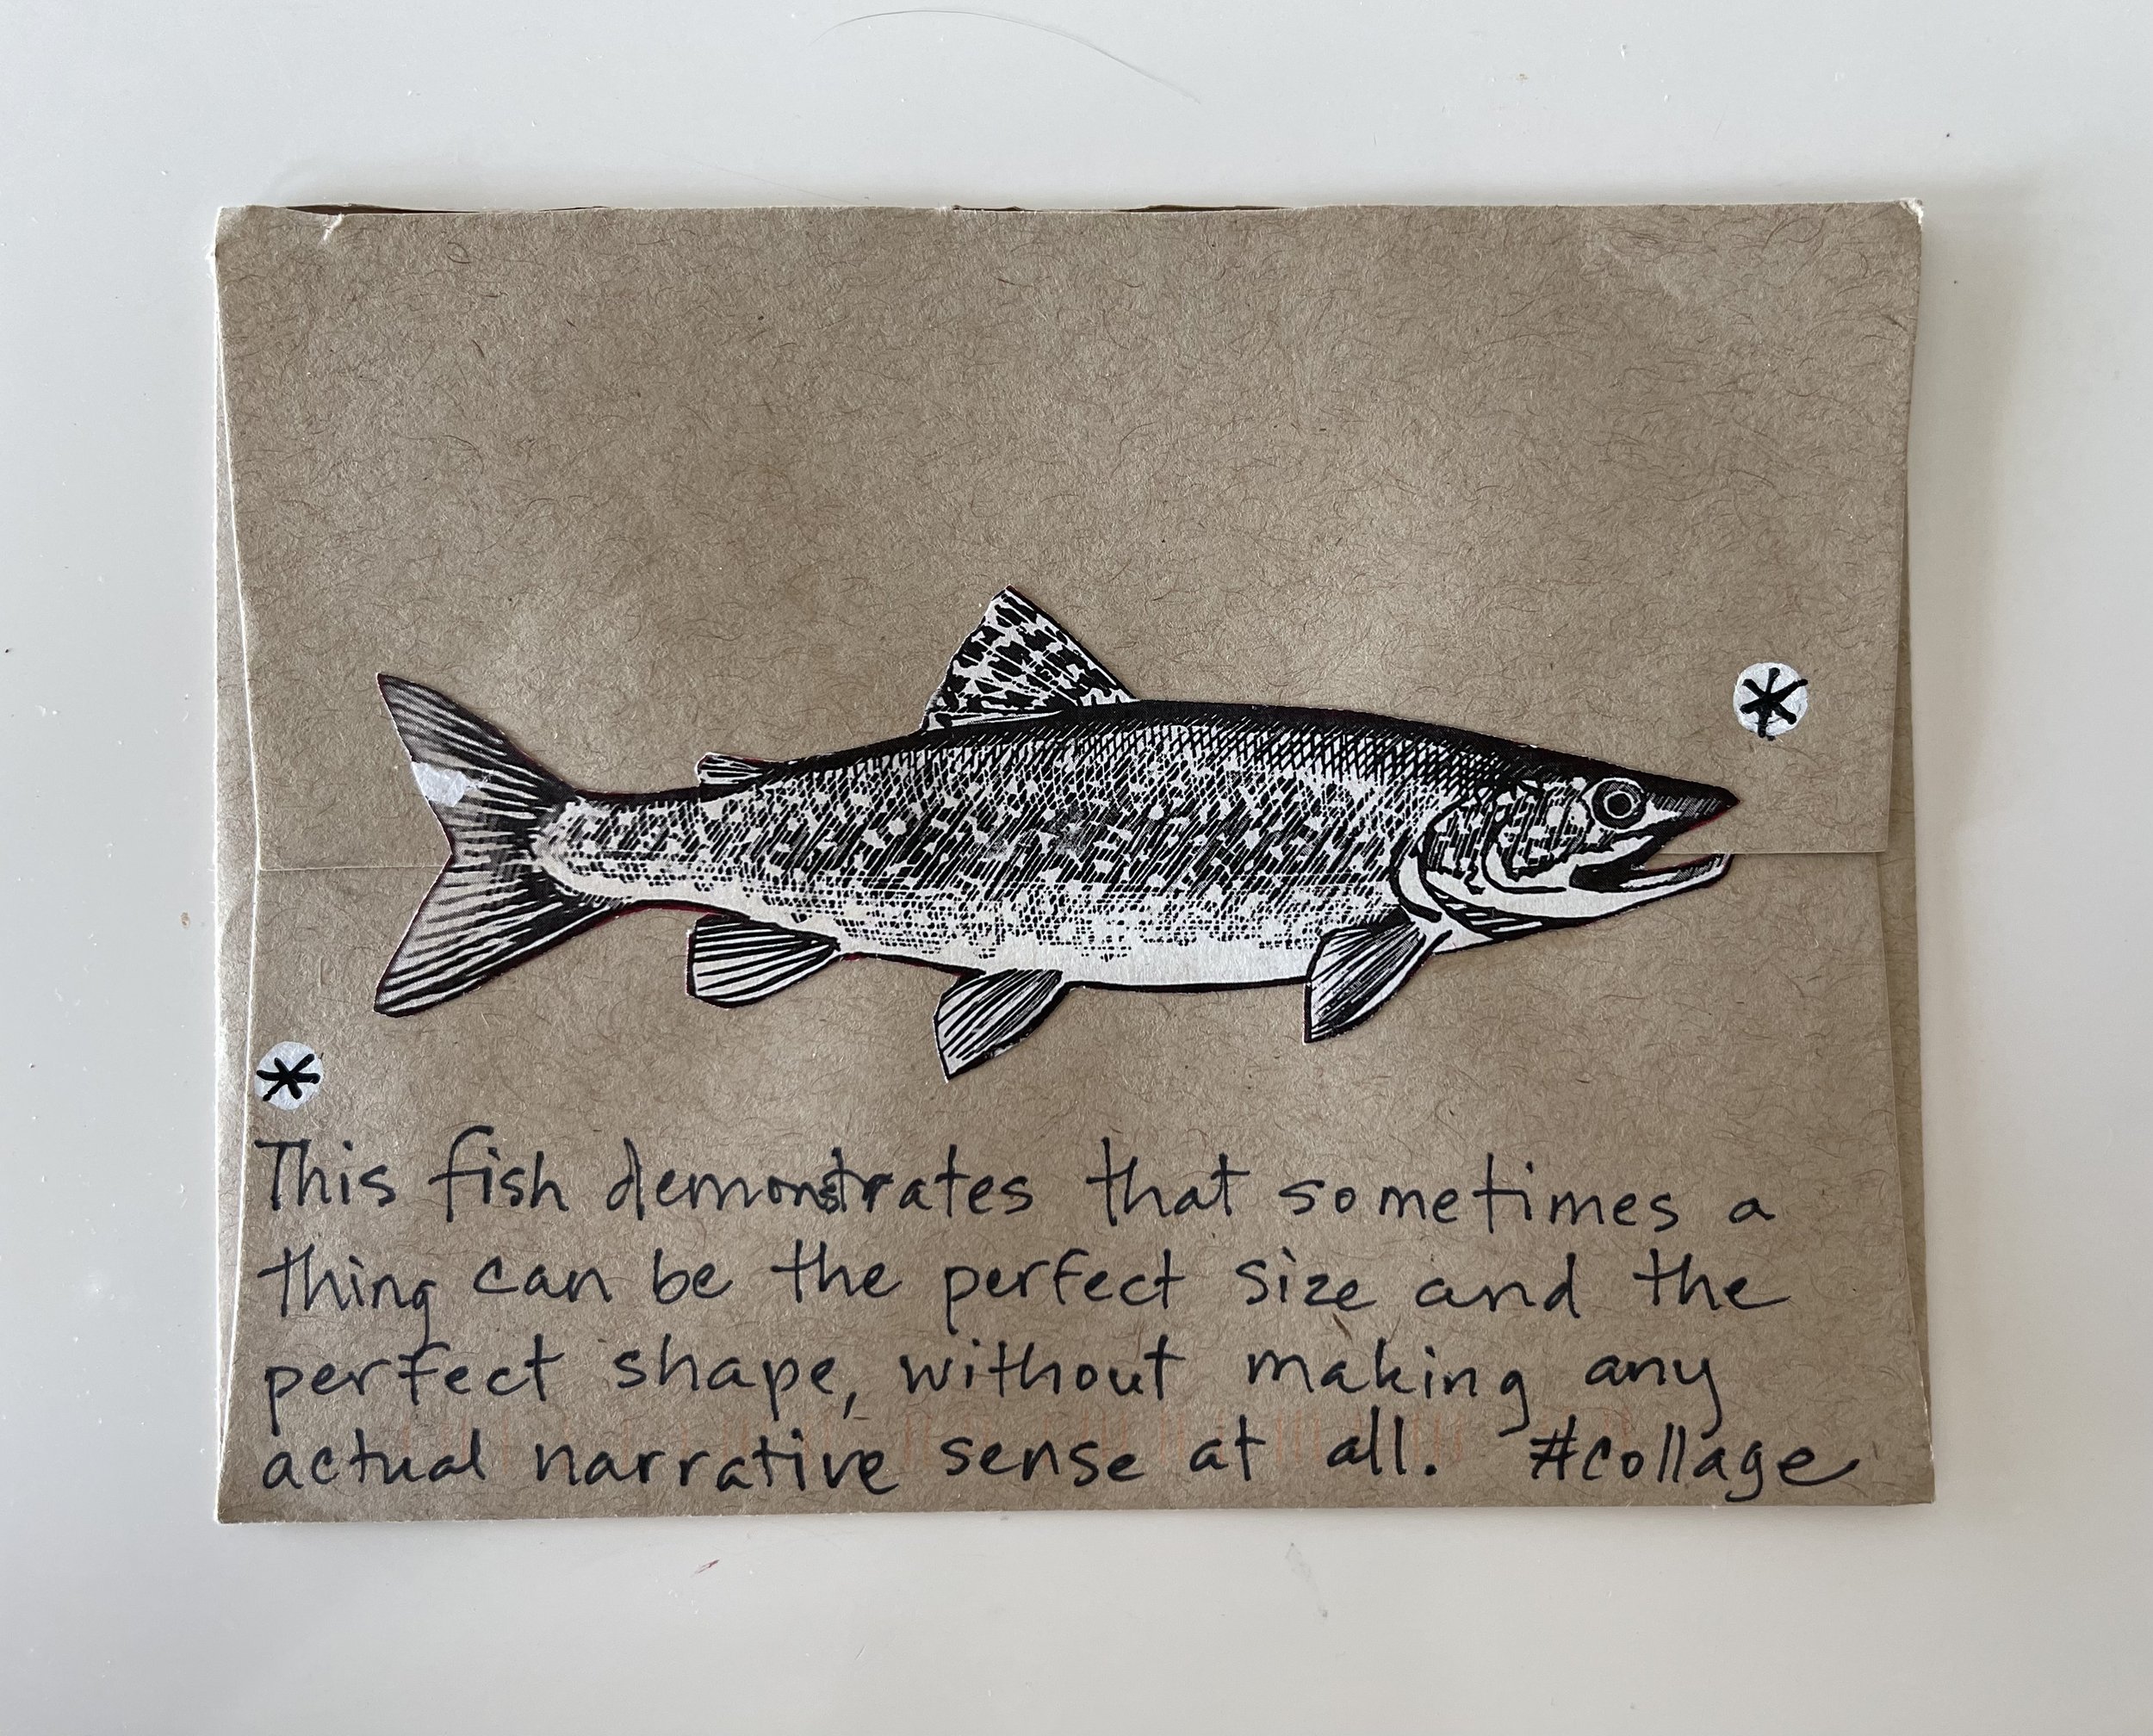 *
*
This fish demonstrates that sometimes a
thing can be the perfect size and the
perfect shape, without making any
actual narrative sense at all. #collage